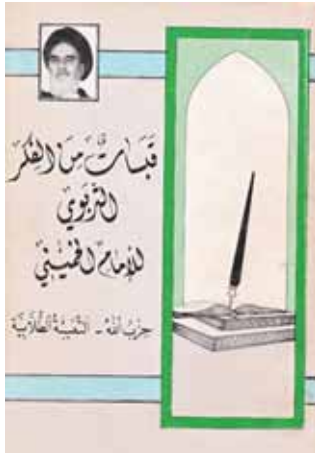 قبسات من الفكر
التربوي
للإمام الخميني
حزب الله - التعبئة الطلابية